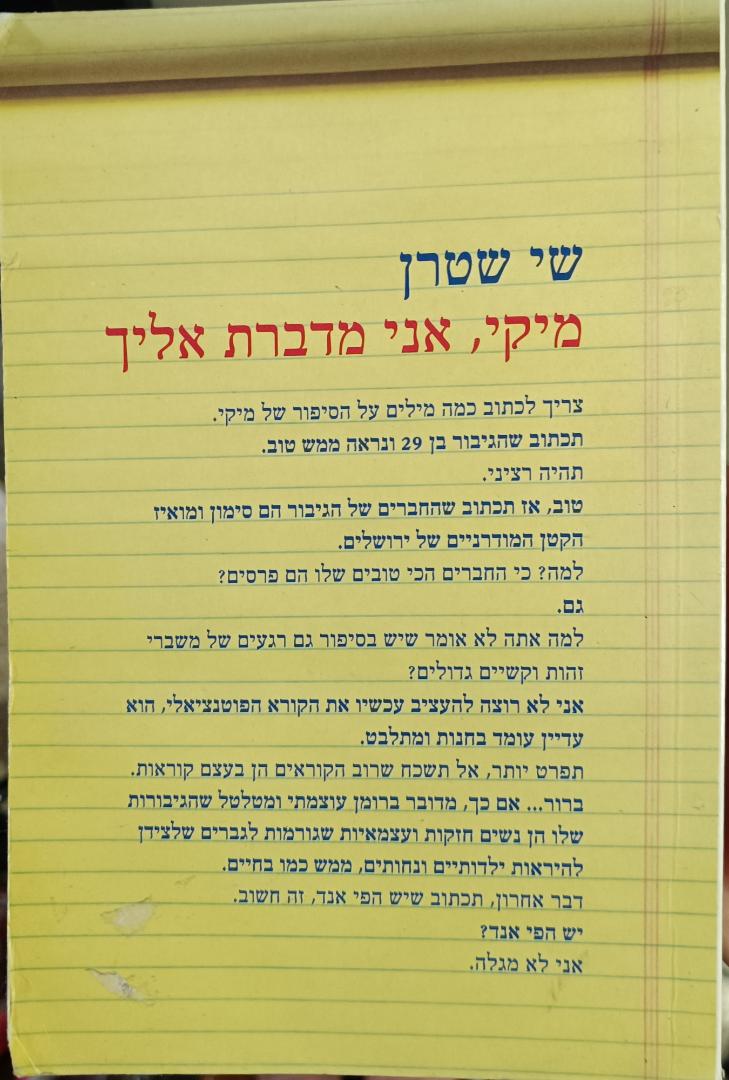 שי שטרן
מיקי, אני מדברת אליך
צריך לכתוב כמה מילים על הסיפור של מיקי.
תכתוב שהגיבור בן 29 ונראה ממש טוב.
תהיה רציני.
טוב, אז תכתוב שהחברים של הגיבור הם סימון ומואיז
הקטן המודרניים של ירושלים.
למה? כי החברים הכי טובים שלו הם פרסים?
גם.
למה אתה לא אומר שיש בסיפור גם רגעים של משברי
זהות וקשיים גדולים?
אני לא רוצה להעציב עכשיו את הקורא הפוטנציאלי, הוא
עדיין עומד בחנות ומתלבט.
תפרט יותר, אל תשכח שרוב הקוראים הן בעצם קוראות.
ברור... אם כך, מדובר ברומן עוצמתי ומטלטל שהגיבורות
שלו הן נשים חזקות ועצמאיות שגורמות לגברים שלצידן
להיראות ילדותיים ונחותים, ממש כמו בחיים.
דבר אחרון, תכתוב שיש הפי אנד, זה חשוב.
יש הפי אנד?
אני לא מגלה.